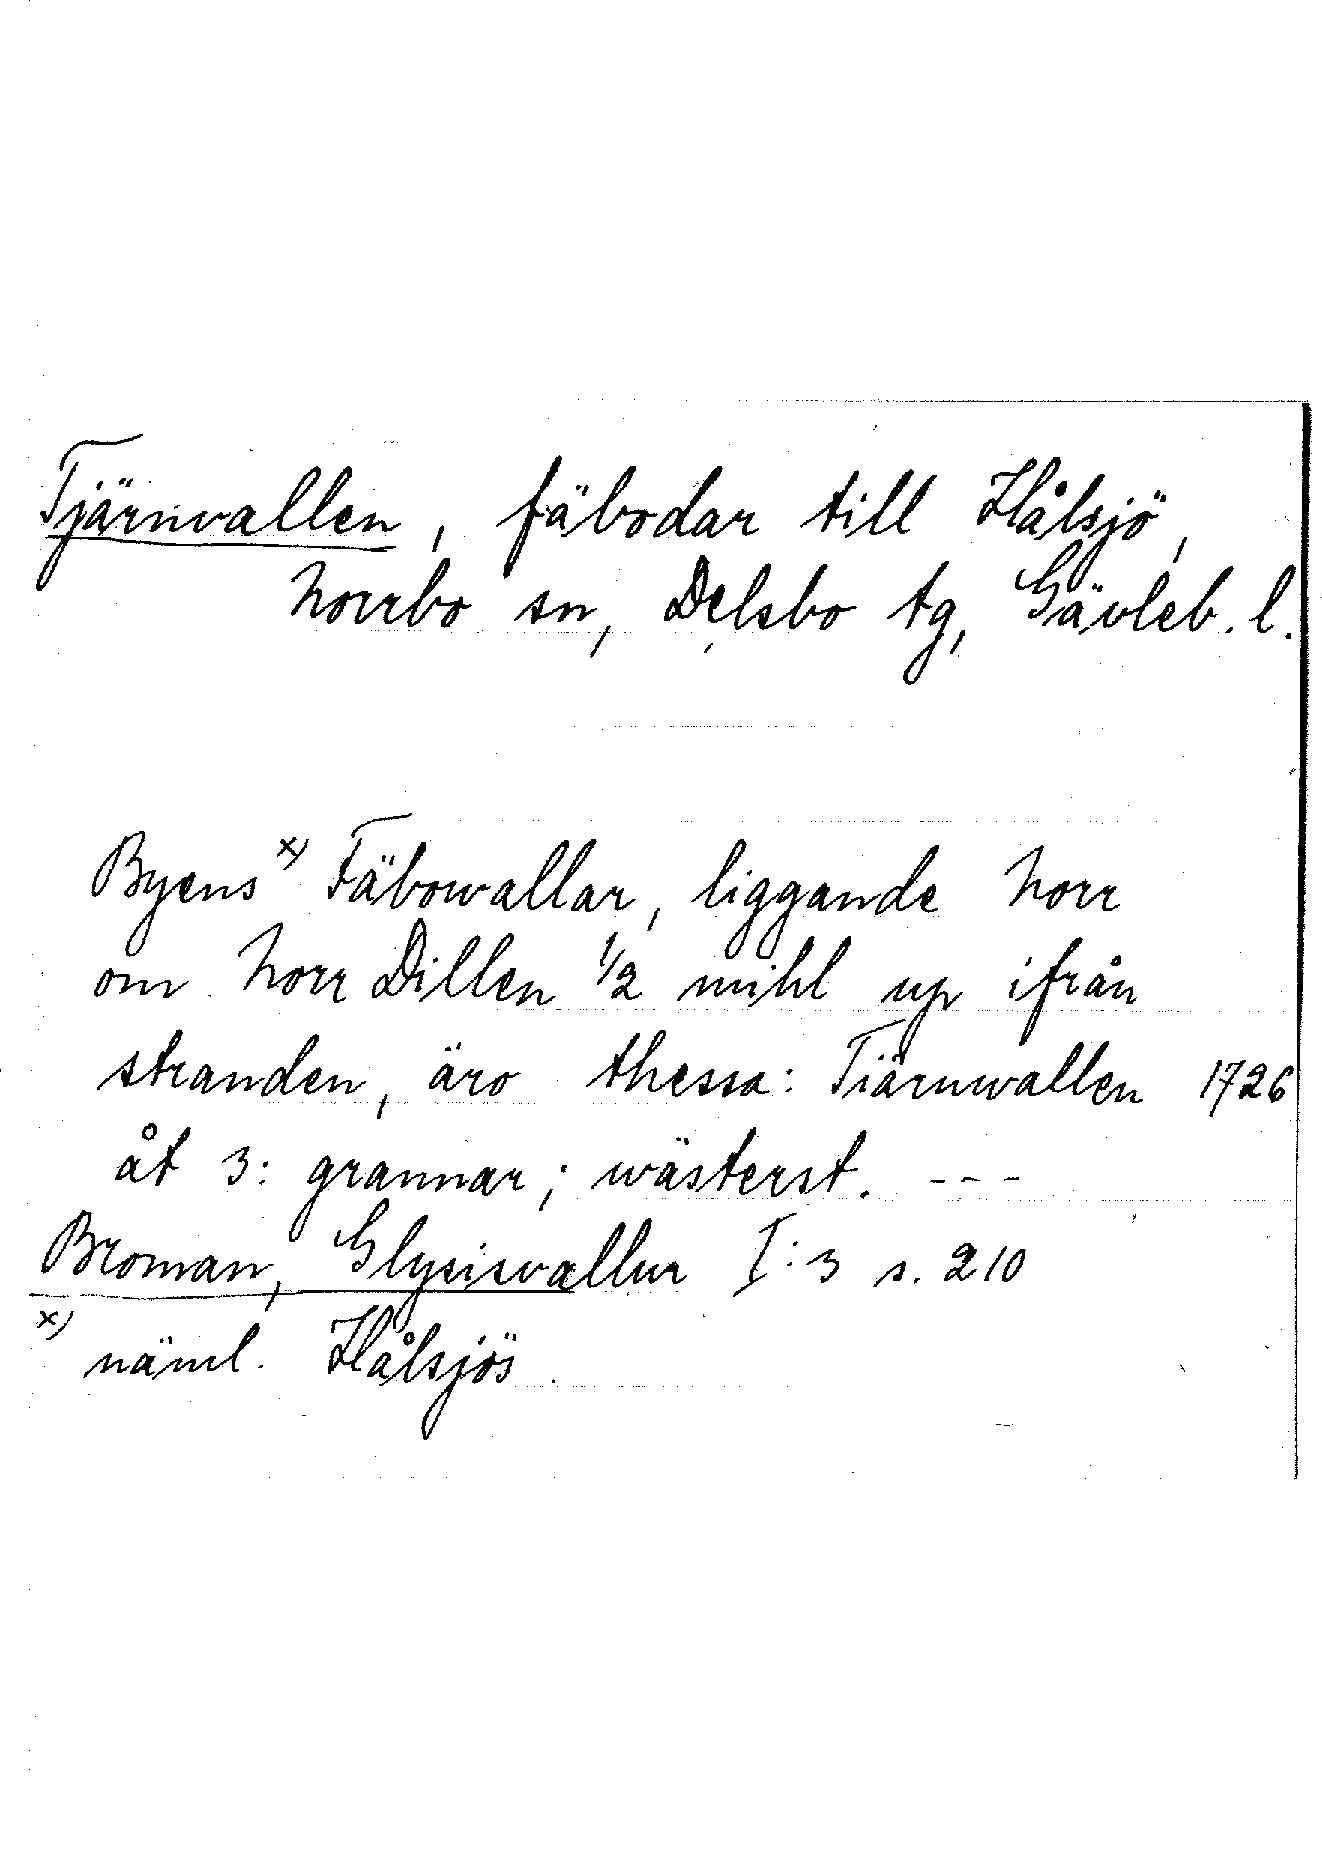 Tjärnvallen, fäbodar till Hålsjö,
Norrbo sn, Delsbo tg, Gävleb. l.
Byens x) Fäbowallar, liggande Norr
om Norr Dillen 1/2 mihl up ifrån
stranden, äro thessa: Tiärnwallen 1726
åt 3: grannar; wästerst. ---
Broman, Glysisvallur I:3 s. 210
x) näml. Hålsjös.